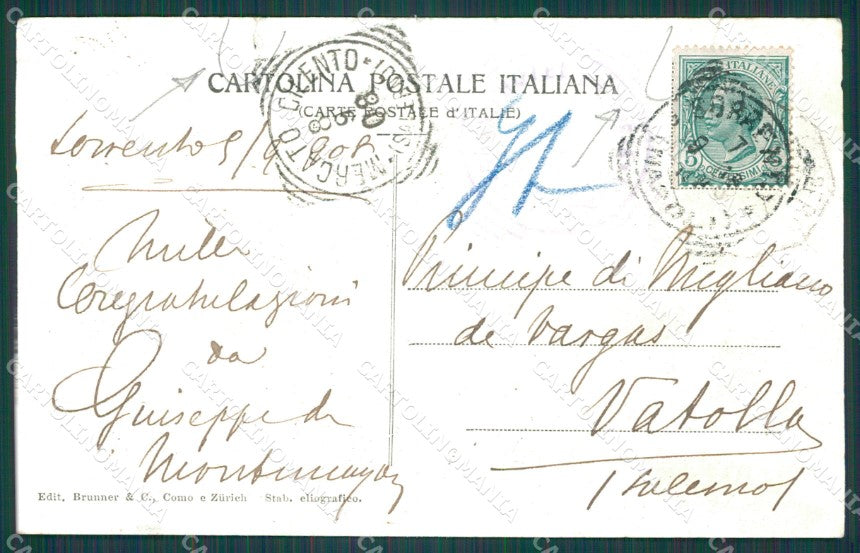 CARTOLINA POSTALE ITALIANA
(CARTE POSTALE d'ITALIE)
MERCATO CILENTO
POSTE ITALIANE
5 CENTESIMI
Sorrento 5/9 908
Mille
Congratulazioni
da
Giuseppe de
Montemayor
Principe di Migliano
de Vargas
Vatolla
(Salerno)
Edit, Brunner & C., Como e Zürich Stab. eliografico.
CARTOLINOMANIA